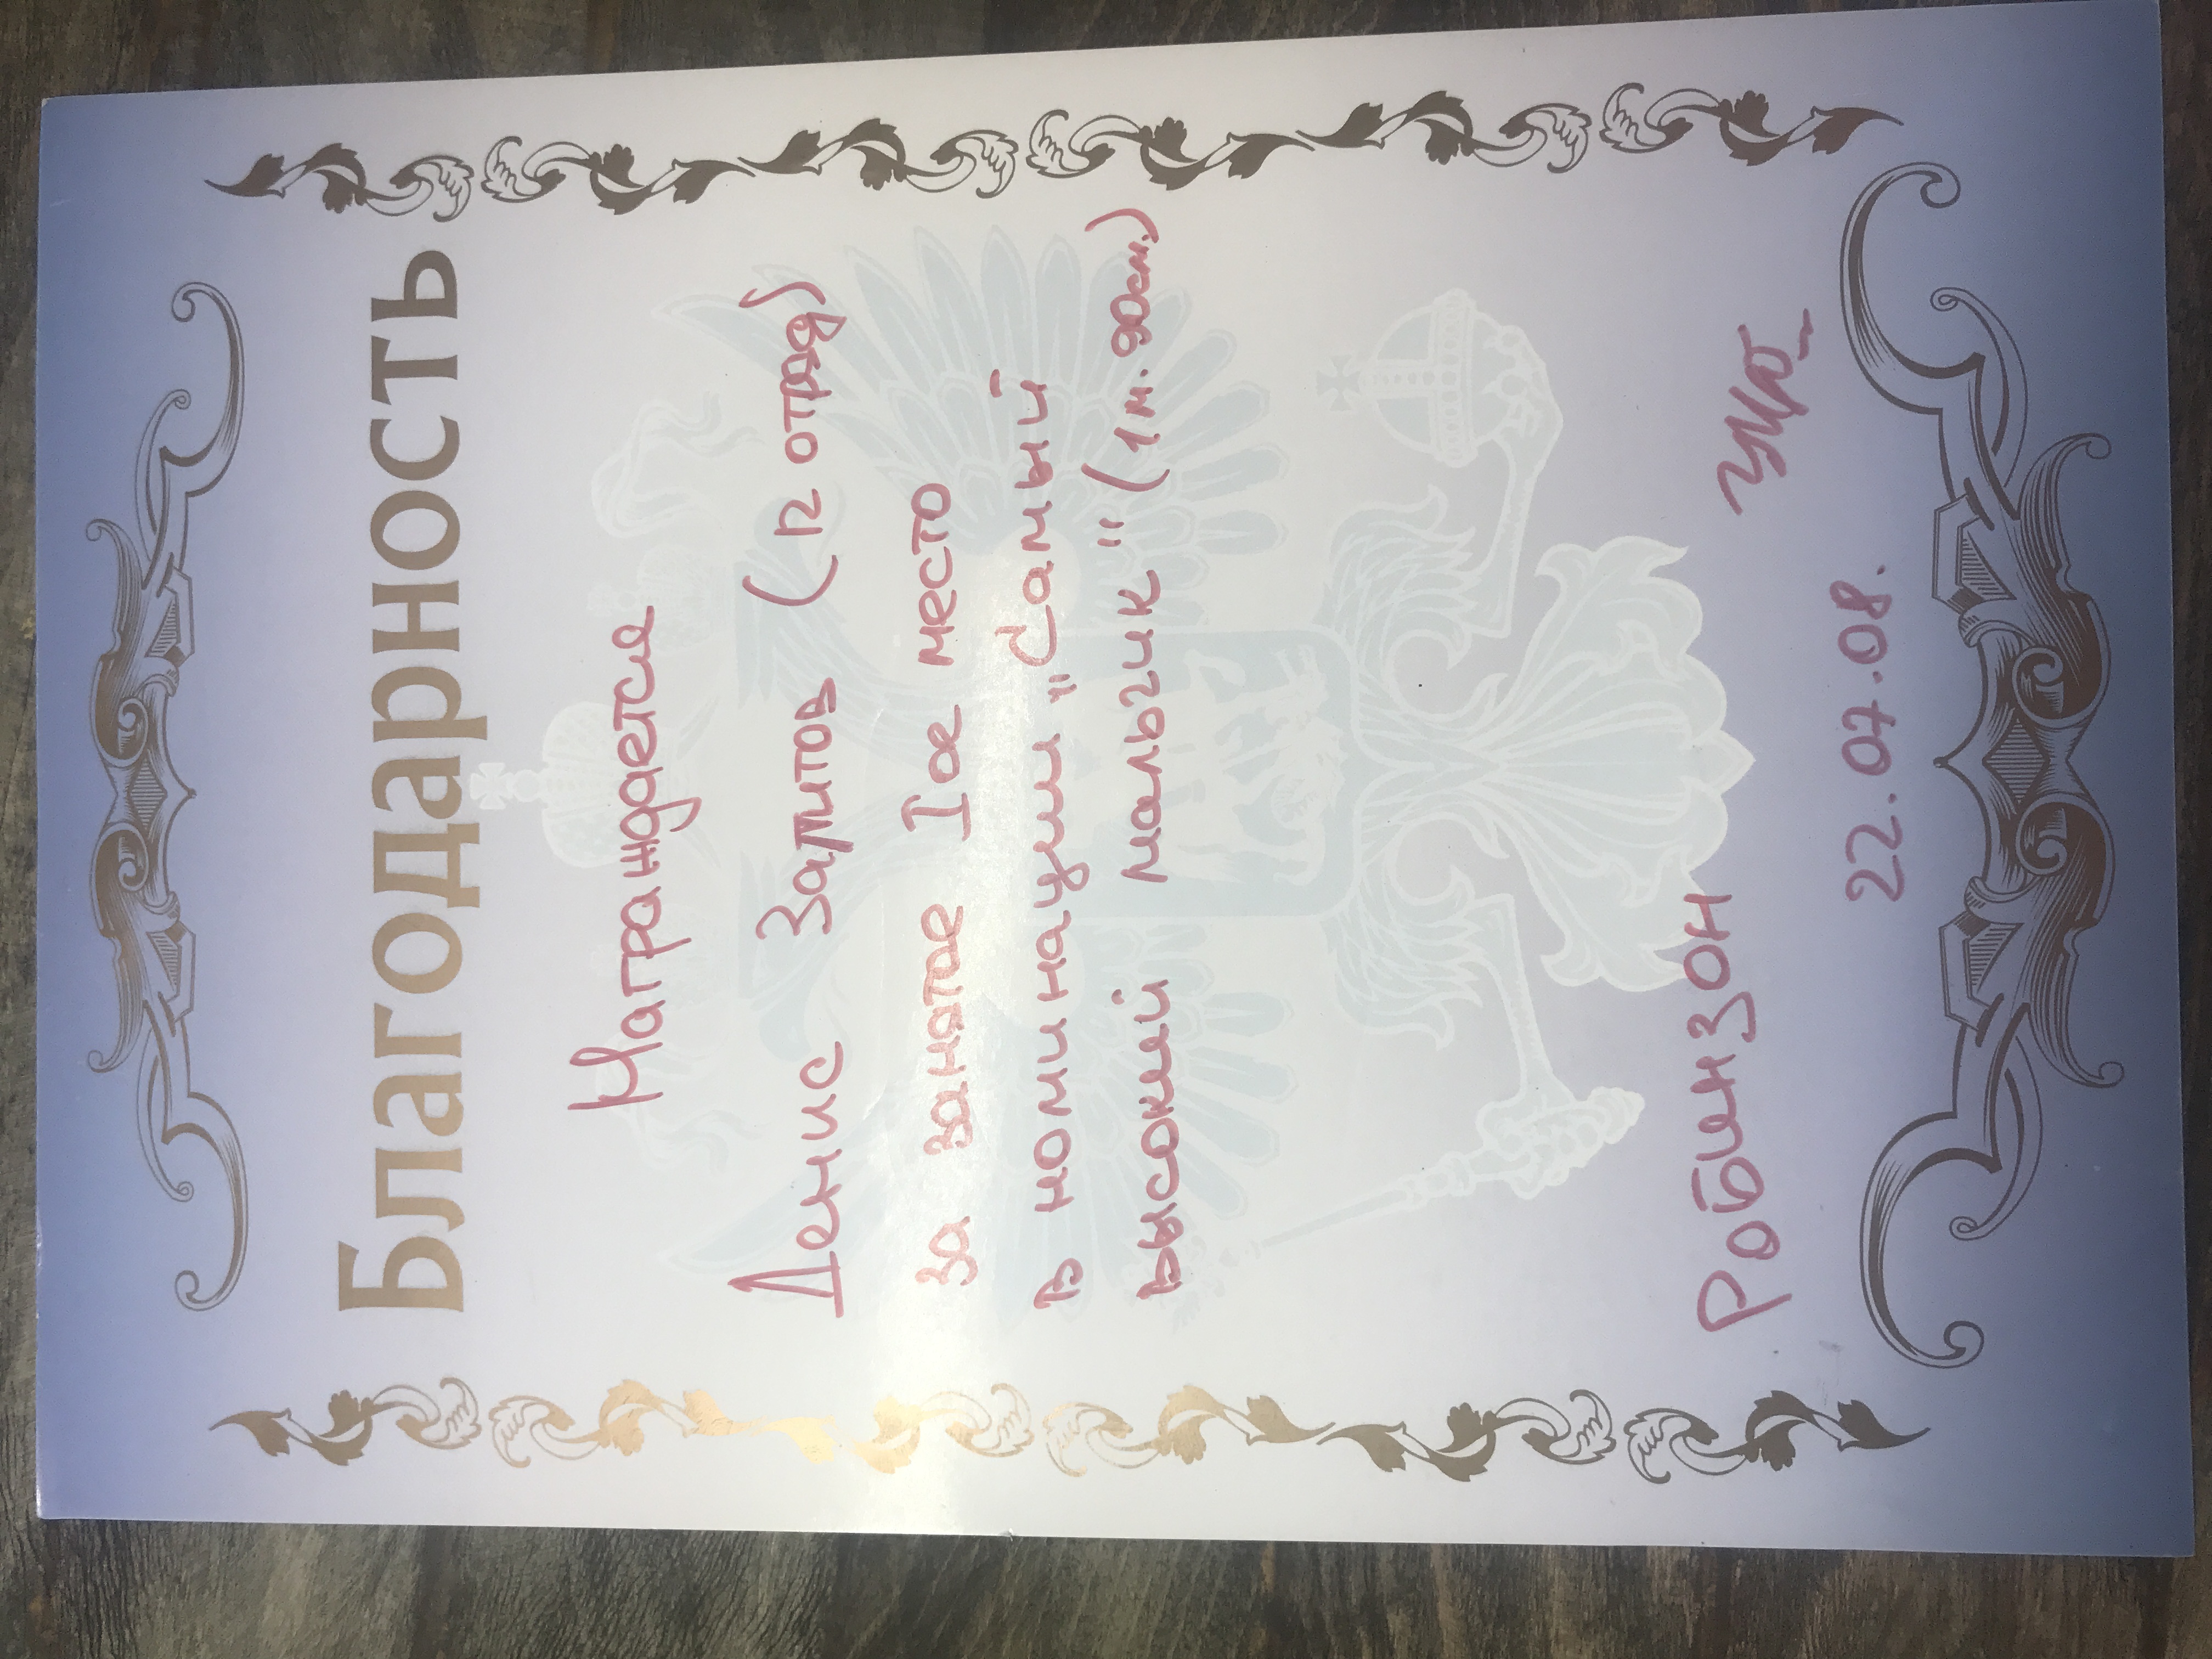 Благодарность
Награждается
Денис (12 отряд)
за занятое I ое место
в номинации „Самый
высокий мальчик" (1 м. 90 см.)
Робинзон
22.07.08.